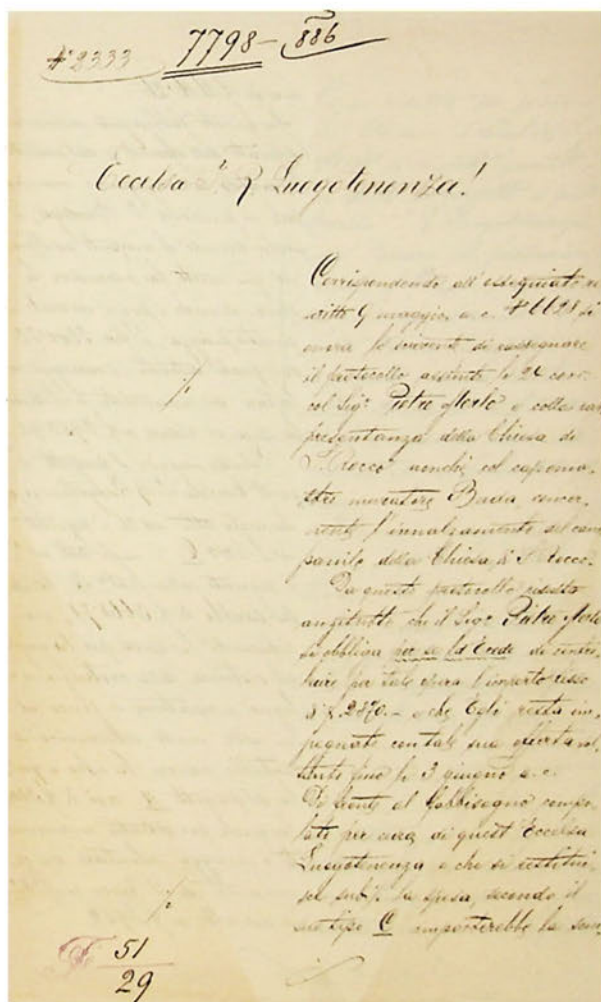 № 2333 7798 - 886
Eccelsa I. R. Luogotenenza!
Corrispondendo all'ossequiato re
scritto 9 maggio a. c. № 6628 si
onora lo scrivente di rassegnare
il protocollo assunto li 24 corr.
col Sigr Pietro Merlo e colla rap
presentanza della Chiesa di
S. Rocco nonchè col capoma
stro muratore Bacia, concer
nente l'innalzamento del cam
panile della Chiesa di S. Rocco.
Da questo protocollo risulta
che il Sigr Pietro Merlo
si obbliga per se ed Eredi di contri
buire per tale opera l'importo fisso
di f. 2870.- e che Egli resta im
pegnato con tale sua offerta sol
tanto fino li 3 giugno a. c.
Di fronte al fabbisogno compi
lato per cura di quest'Eccelsa
Luogotenenza e che si restitui
sce sub ./. la spesa, secondo il
suo tipo C importerebbe la som
./.
./.
51
29